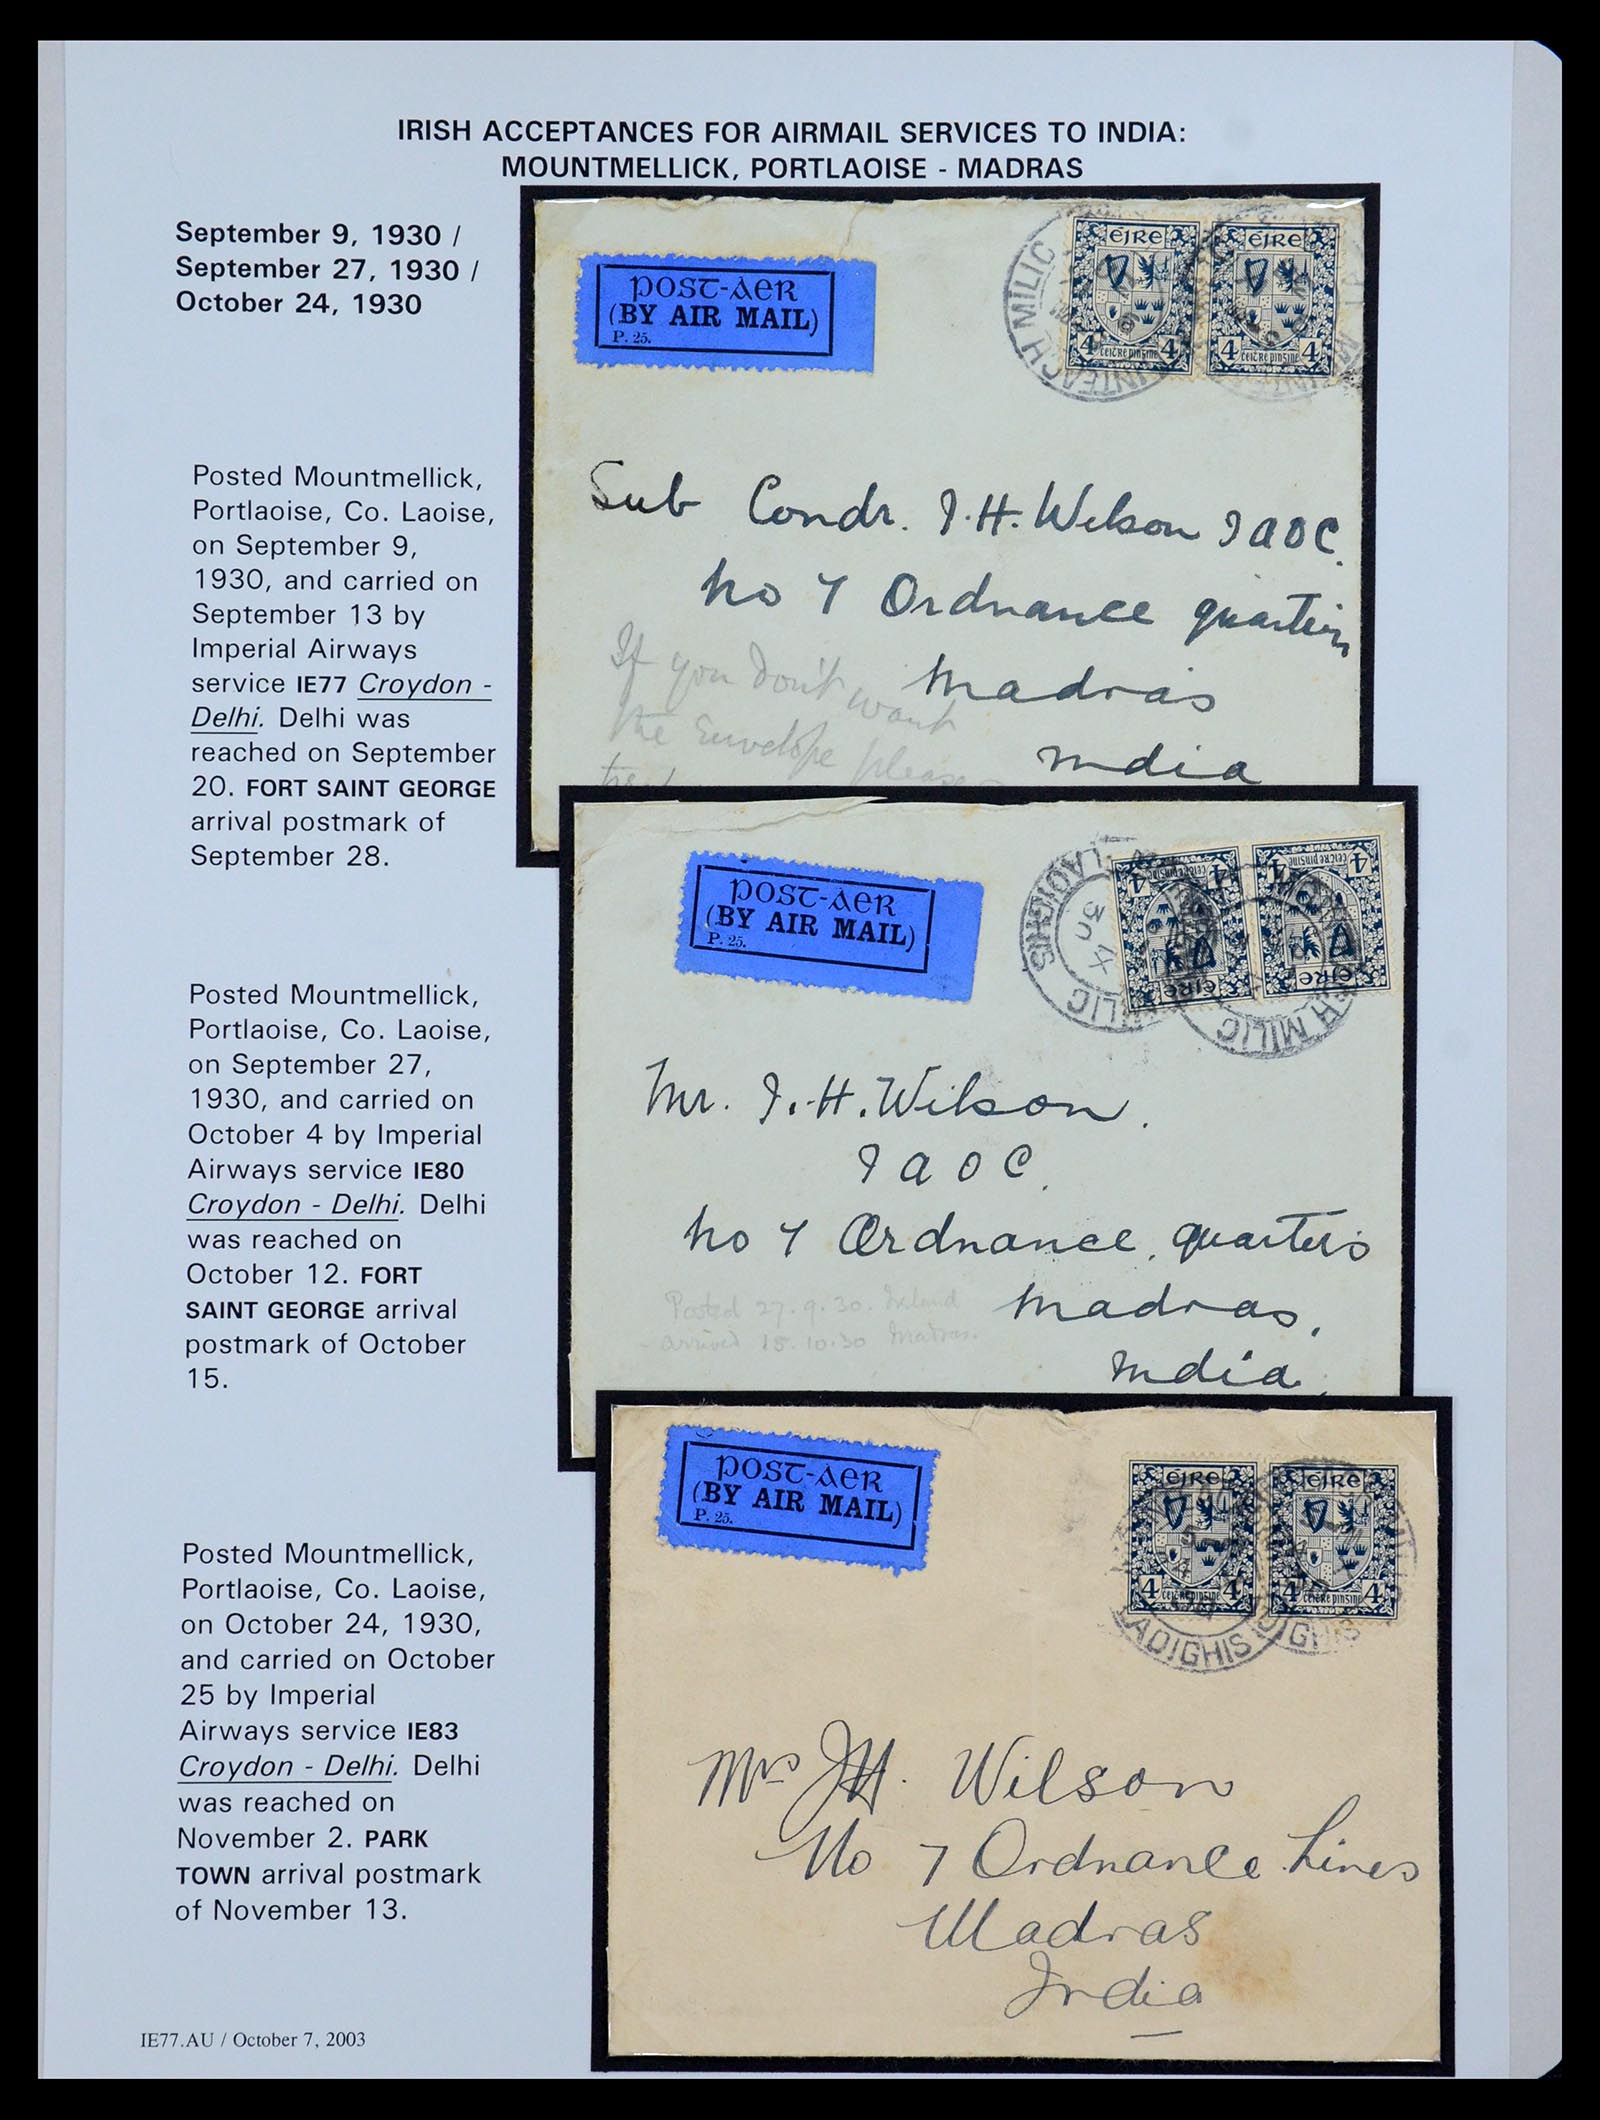 IRISH ACCEPTANCES FOR AIRMAIL SERVICES TO INDIA:
MOUNTMELLICK, PORTLAOISE - MADRAS
September 9, 1930 /
September 27, 1930 /
October 24, 1930
Posted Mountmellick,
Portlaoise, Co. Laoise,
on September 9,
1930, and carried on
September 13 by
Imperial Airways
service IE77 Croydon -
Delhi. Delhi was
reached on September
20. FORT SAINT GEORGE
arrival postmark of
September 28.
POST-AER
(BY AIR MAIL)
P. 25.
ÉIRE
4 CEITRE PINSINE 4
ÉIRE
4 CEITRE PINSINE 4
Sub Condr. J. H. Wilson IAOC.
No 7 Ordnance quarters
Madras
India
If you Don't want
the Envelope please
Posted Mountmellick,
Portlaoise, Co. Laoise,
on September 27,
1930, and carried on
October 4 by Imperial
Airways service IE80
Croydon - Delhi. Delhi
was reached on
October 12. FORT
SAINT GEORGE arrival
postmark of October
15.
POST-AER
(BY AIR MAIL)
P. 25.
ÉIRE
4 CEITRE PINSINE 4
ÉIRE
4 CEITRE PINSINE 4
LAOIGHIS
IX 30
MILIC
Mr. J. H. Wilson.
IAOC.
No 7 Ordnance quarters
Madras,
India,
Posted 27.9.30. Ireland
arrived 15.10.30 Madras.
Posted Mountmellick,
Portlaoise, Co. Laoise,
on October 24, 1930,
and carried on October
25 by Imperial
Airways service IE83
Croydon - Delhi. Delhi
was reached on
November 2. PARK
TOWN arrival postmark
of November 13.
POST-AER
(BY AIR MAIL)
P. 25.
ÉIRE
4 CEITRE PINSINE 4
ÉIRE
4 CEITRE PINSINE 4
Mrs J H. Wilson
No 7 Ordnance Lines
Madras
India
IE77.AU / October 7, 2003